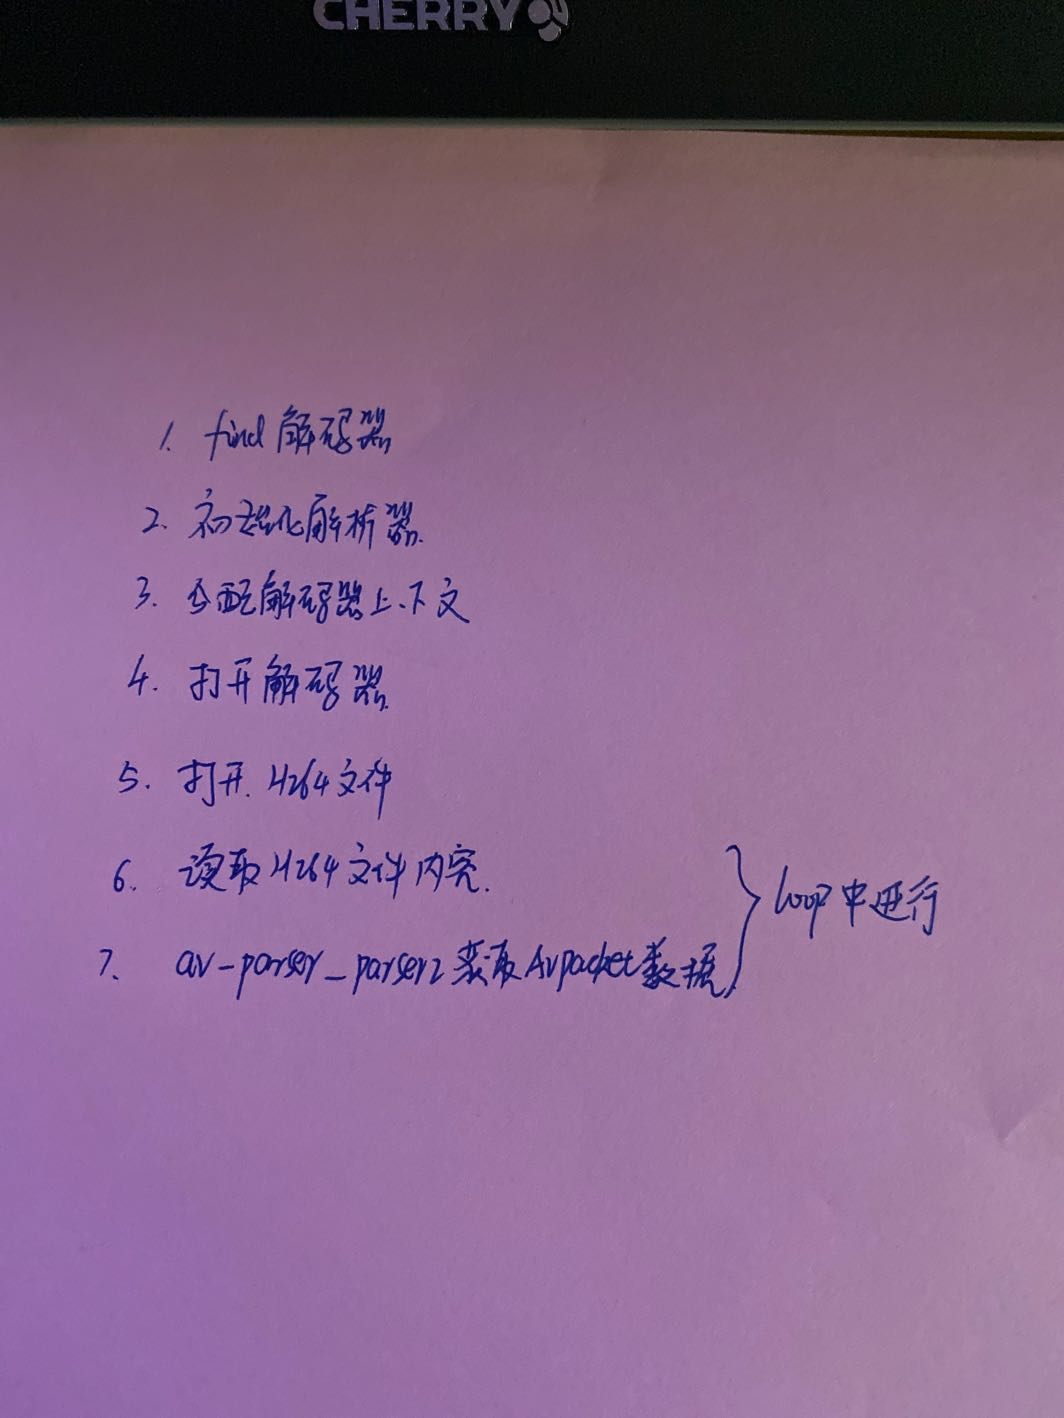 CHERRY
1. find 解码器
2. 初始化解析器.
3. 分配解码器上下文
4. 打开解码器
5. 打开 H264 文件
6. 读取 H264 文件内容.
7. av-parser_parser2 获取 Avpacket 数据
loop 中进行